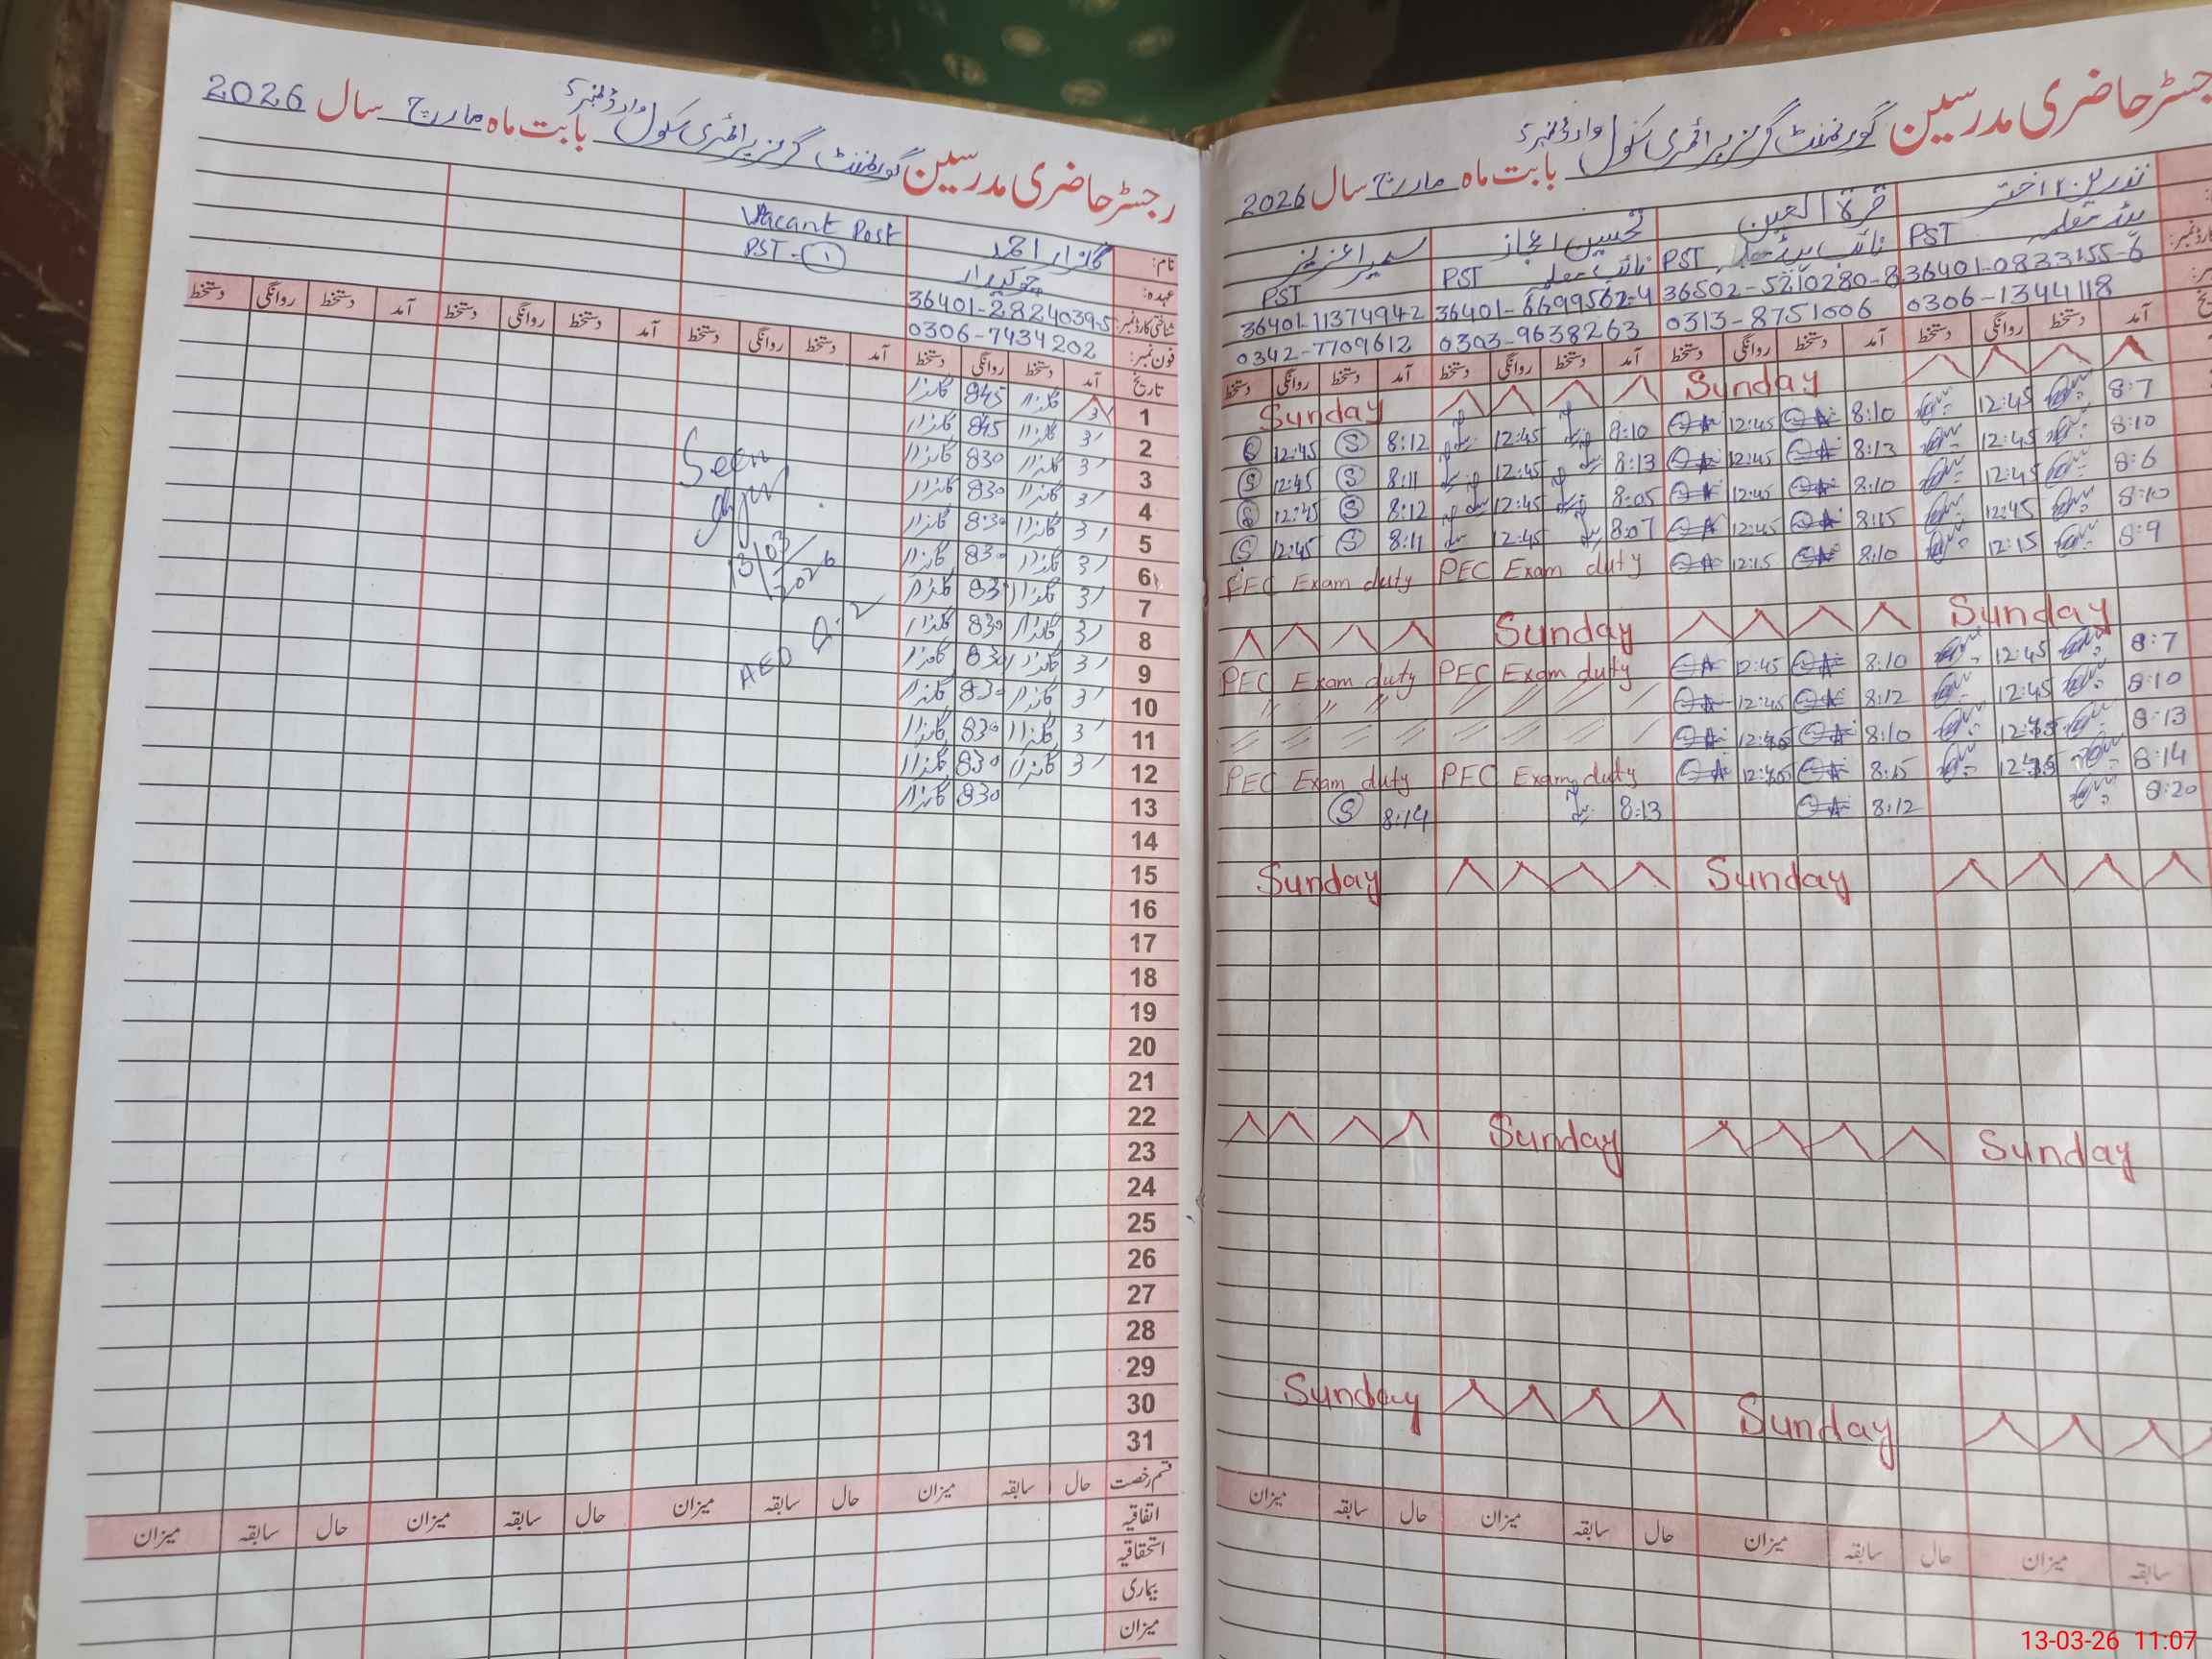 رجسٹر حاضری مدرسین گورنمنٹ گرلز پرائمری سکول وارڈ نمبر 5 بابت ماہ مارچ سال 2026
نام: گلزار احمد Vacant Post
عہدہ: چوکیدار PST - 1
شناختی کارڈ نمبر: 36401-2824039-5
فون نمبر: 0306-7434202
تاریخ آمد دستخط روانگی دستخط آمد دستخط روانگی دستخط آمد دستخط روانگی دستخط آمد دستخط روانگی دستخط
1 گلزار 845 گلزار
2 گلزار 845 گلزار
3 گلزار 830 گلزار
4 گلزار 830 گلزار
5 گلزار 830 گلزار
6 گلزار 830 گلزار
7 گلزار 830 گلزار
8 گلزار 830 گلزار
9 گلزار 830 گلزار
10 گلزار 830 گلزار
11 گلزار 830 گلزار
12 گلزار 830 گلزار
13 830 گلزار
Seen
13/03/2026
AEO
14
15
16
17
18
19
20
21
22
23
24
25
26
27
28
29
30
31
قسم رخصت حال سابقہ میزان حال سابقہ میزان حال سابقہ میزان حال سابقہ میزان
اتفاقیہ
استحقاقیہ
بیماری
میزان
رجسٹر حاضری مدرسین گورنمنٹ گرلز پرائمری سکول وارڈ نمبر 5 بابت ماہ مارچ سال 2026
نسرین اختر قرۃ العین تحسین اعجاز سمیرا عزیز
PST ہیڈ معلمہ PST نائب ہیڈ معلمہ PST نائب معلمہ PST
36401-0833155-6 36502-5210280-8 36401-6699562-4 36401-11374942
0306-1344118 0313-8751006 0303-9638263 0342-7709612
آمد دستخط روانگی دستخط آمد دستخط روانگی دستخط آمد دستخط روانگی دستخط آمد دستخط روانگی دستخط
Sunday Sunday
8:7 12:45 8:10 12:45 8:10 12:45 8:12 12:45
8:10 12:45 8:13 12:45 8:13 12:45 8:11 12:45
8:6 12:45 8:10 12:45 8:05 12:45 8:12 12:45
8:10 12:45 8:15 12:45 8:07 12:45 8:11 12:45
8:9 12:15 8:10 12:15 PEC Exam duty PEC Exam duty
Sunday Sunday
8:7 12:45 8:10 12:45 PEC Exam duty PEC Exam duty
8:10 12:45 8:12 12:45 〃 〃 〃
8:13 12:45 8:10 12:45
8:14 12:45 8:15 12:45 PEC Exam duty PEC Exam duty
8:20 8:12 8:13 8:14
Sunday Sunday
Sunday Sunday
Sunday Sunday
سابقہ میزان حال سابقہ میزان حال سابقہ میزان حال سابقہ میزان
13-03-26 11:07